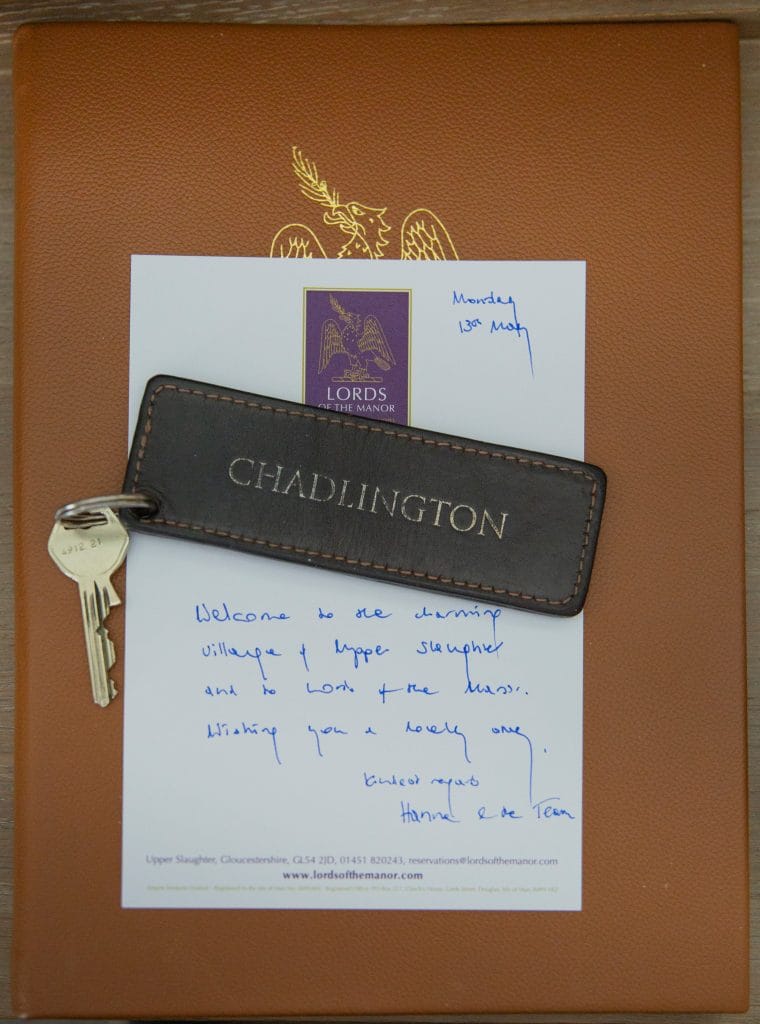 Monday
13th May
LORDS
OF THE MANOR
CHADLINGTON
4912 21
Welcome to the charming
village of Upper Slaughter
and to Lords of the Manor.
Wishing you a lovely
Kindest regards
Hanna & the Team
Upper Slaughter, Gloucestershire, GL54 2JD, 01451 820243, reservations@lordsofthemanor.com
www.lordsofthemanor.com